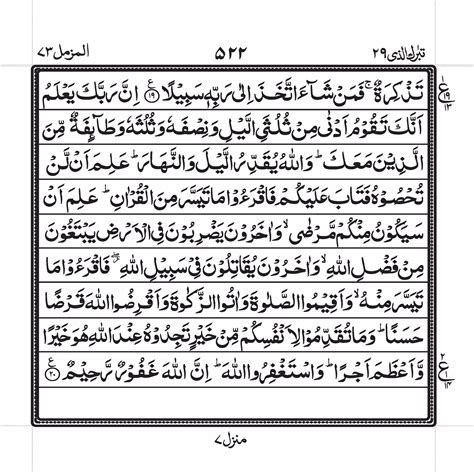 تبٰرك الذی ۲۹
۵۲۲
المزمل ۷۳
تَذْكِرَةٌ ۚ فَمَنْ شَآءَ اتَّخَذَ اِلٰى رَبِّهٖ سَبِيْلًا ﴿۱۹﴾ اِنَّ رَبَّكَ يَعْلَمُ
ع ۱۹ ۱۳
اَنَّكَ تَقُوْمُ اَدْنٰى مِنْ ثُلُثَيِ الَّيْلِ وَنِصْفَهٗ وَثُلُثَهٗ وَطَآئِفَةٌ مِّنَ
الَّذِيْنَ مَعَكَ ؕ وَاللّٰهُ يُقَدِّرُ الَّيْلَ وَالنَّهَارَ ؕ عَلِمَ اَنْ لَّنْ
تُحْصُوْهُ فَتَابَ عَلَيْكُمْ فَاقْرَءُوْا مَا تَيَسَّرَ مِنَ الْقُرْاٰنِ ؕ عَلِمَ اَنْ
سَيَكُوْنُ مِنْكُمْ مَّرْضٰى ۙ وَاٰخَرُوْنَ يَضْرِبُوْنَ فِى الْاَرْضِ يَبْتَغُوْنَ
مِنْ فَضْلِ اللّٰهِ ۙ وَاٰخَرُوْنَ يُقَاتِلُوْنَ فِىْ سَبِيْلِ اللّٰهِ ۖ فَاقْرَءُوْا مَا
تَيَسَّرَ مِنْهُ ۙ وَاَقِيْمُوا الصَّلٰوةَ وَاٰتُوا الزَّكٰوةَ وَاَقْرِضُوا اللّٰهَ قَرْضًا
حَسَنًا ؕ وَمَا تُقَدِّمُوْا لِاَنْفُسِكُمْ مِّنْ خَيْرٍ تَجِدُوْهُ عِنْدَ اللّٰهِ هُوَ خَيْرًا
وَّاَعْظَمَ اَجْرًا ؕ وَاسْتَغْفِرُوا اللّٰهَ ؕ اِنَّ اللّٰهَ غَفُوْرٌ رَّحِيْمٌ ﴿۲۰﴾
۲ ع ۱ ۱۴
منزل ۷